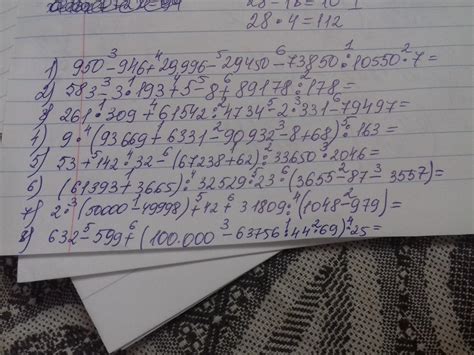 28-18=10
28·4=112
1) 950-946+29996-29450-73850:10550·7=
2) 583-3·193+5-8+89178:178=
3) 261·309+61542:4734-2·331-79497=
4) 9·(93669+6331-90932-8+68):163=
5) 53+142·32-(67238+62):33650·2046=
6) (61393+3665):32529·23·(3655-87-3557)=
7) 2·(50000-49998)+42+31809:(1048-979)=
8) 632-599+(100.000-63756:44·69)·25=